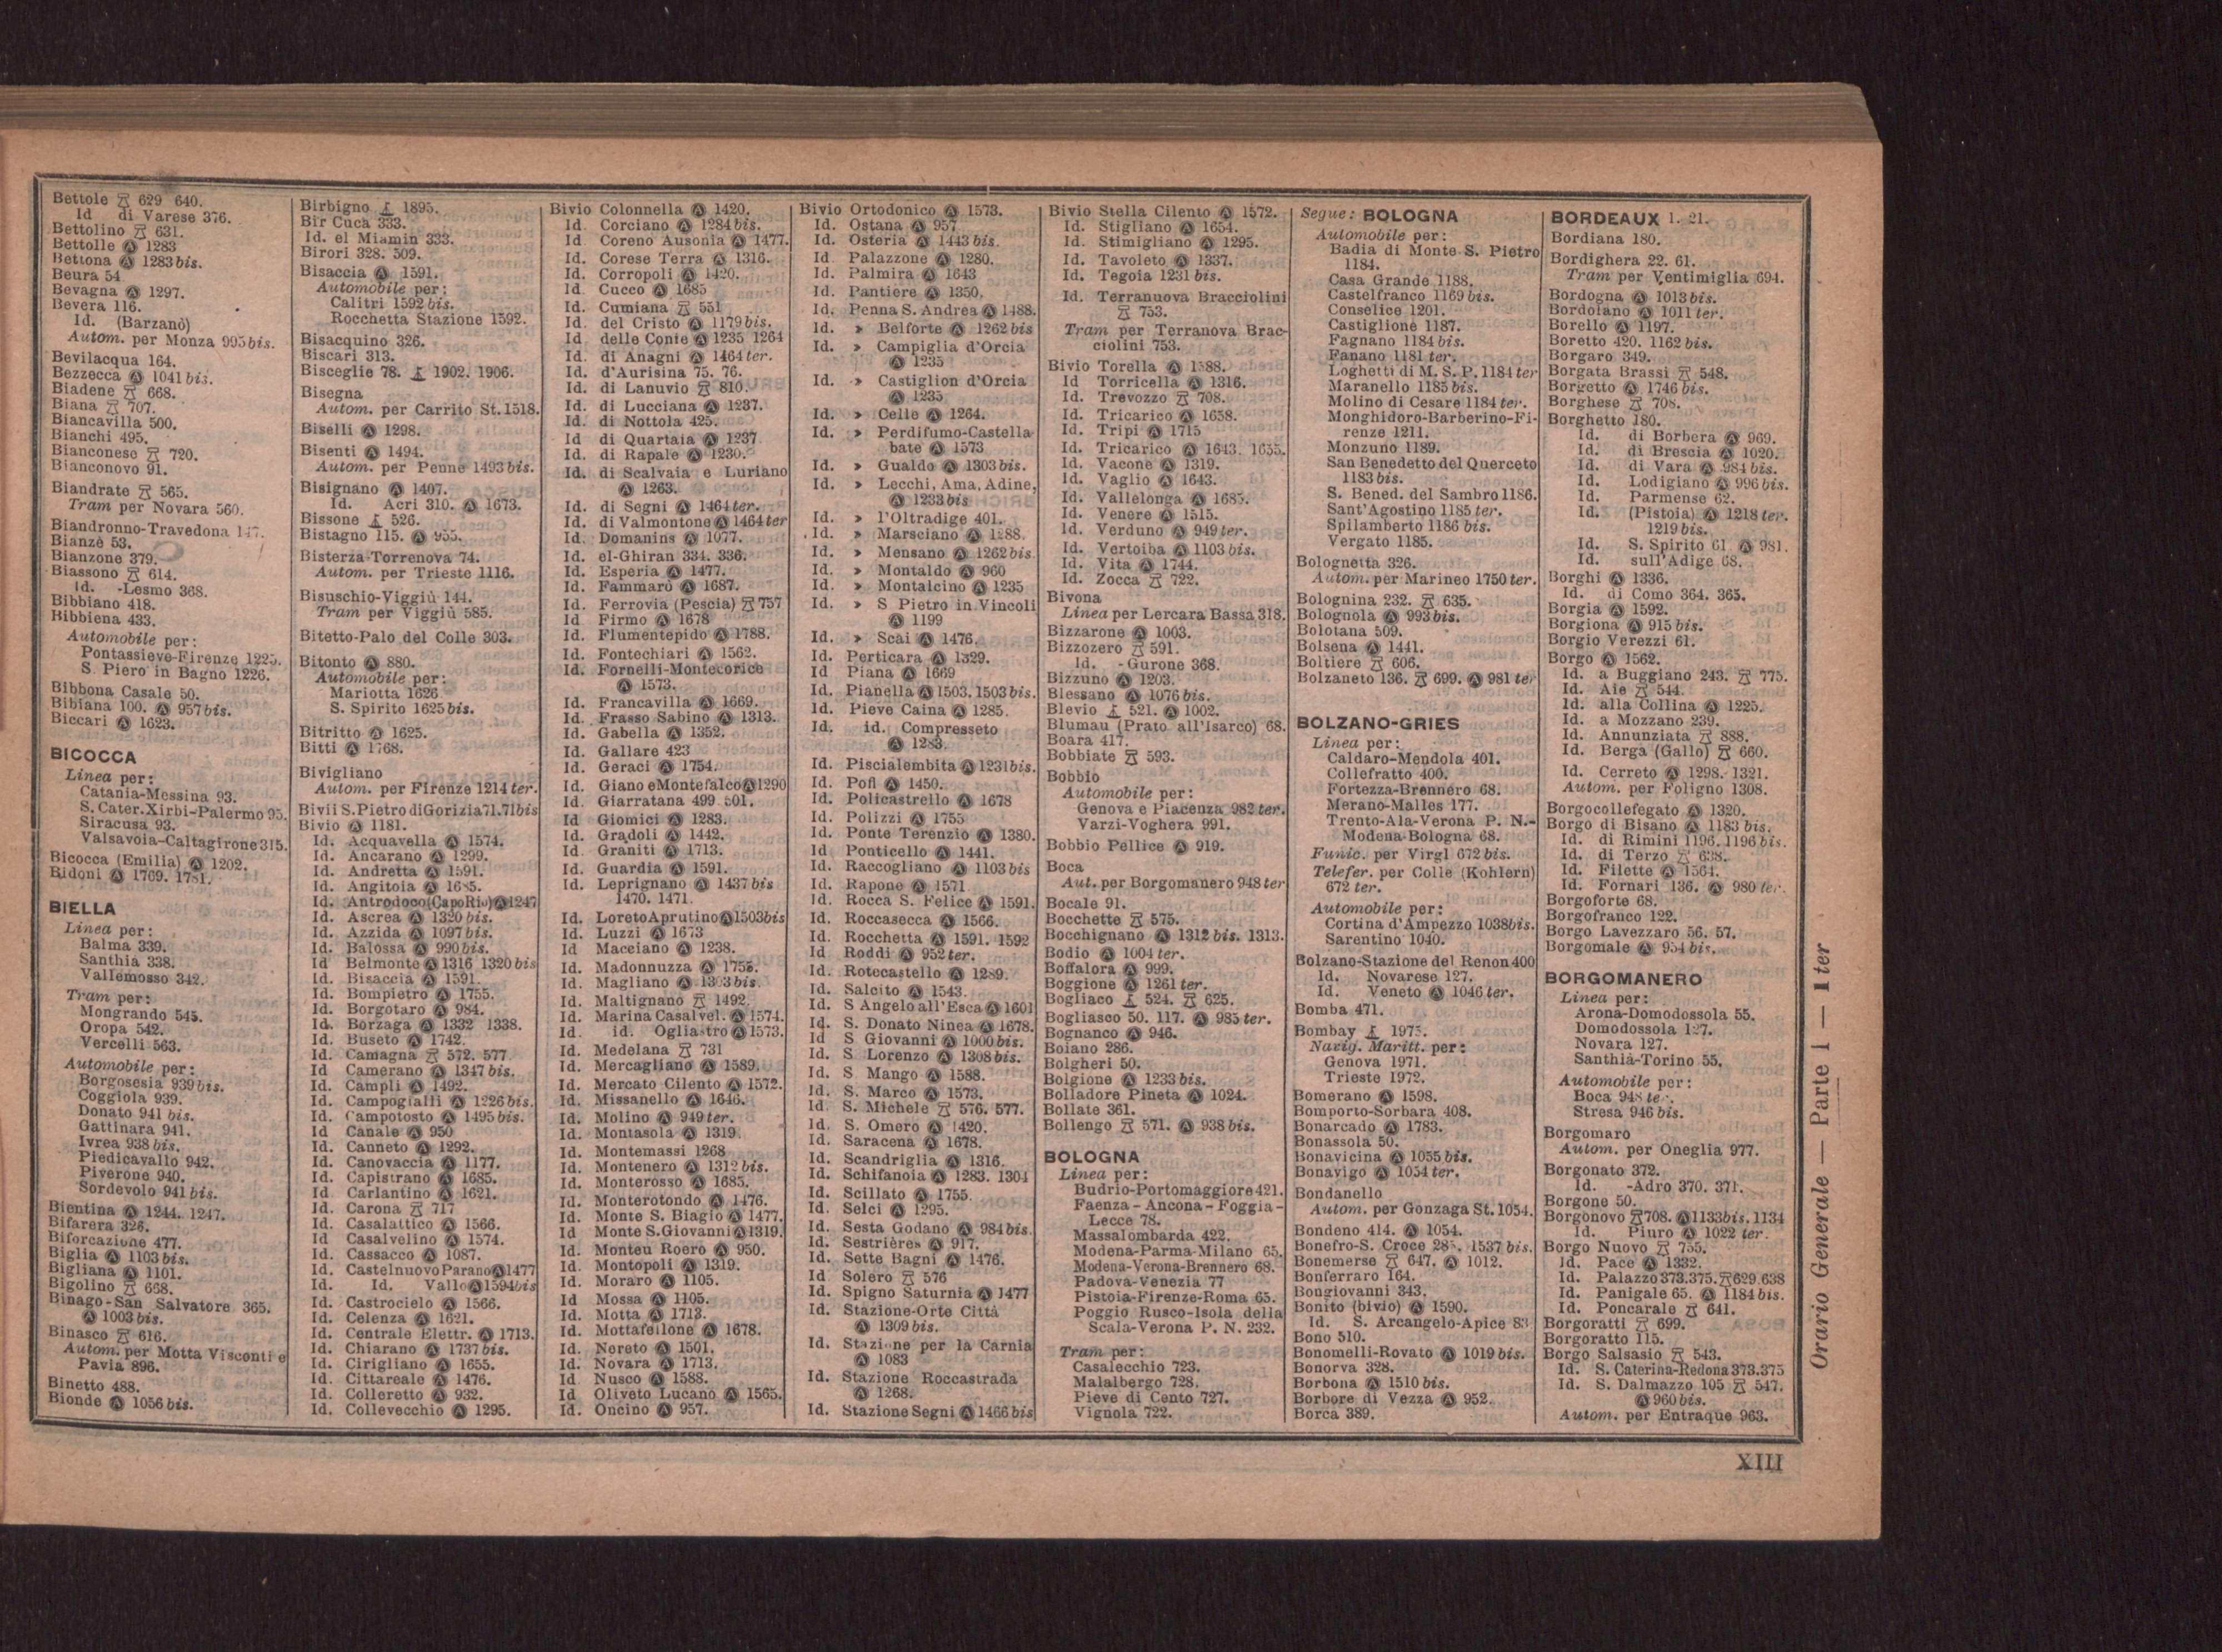 Bettole 629 640.
Id di Varese 376.
Bettolino 631.
Bettolle Ⓐ 1283
Bettona Ⓐ 1283 bis.
Beura 54
Bevagna Ⓐ 1297.
Bevera 116.
Id. (Barzanò)
Autom. per Monza 995 bis.
Bevilacqua 164.
Bezzecca Ⓐ 1041 bis.
Biadene 668.
Biana 707.
Biancavilla 500.
Bianchi 495.
Bianconese 720.
Bianconovo 91.
Biandrate 565.
Tram per Novara 560.
Biandronno-Travedona
Bianzè 53.
Bianzone 379.
Biassono 614.
Id. -Lesmo 368.
Bibbiano 418.
Bibbiena 433.
Automobile per:
Pontassieve-Firenze 1225.
S. Piero in Bagno 1226.
Bibbona Casale 50.
Bibiana 100. Ⓐ 957 bis.
Biccari Ⓐ 1623.
BICOCCA
Linea per:
Catania-Messina 93.
S. Cater. Xirbi-Palermo 95.
Siracusa 93.
Valsavoia-Caltagirone 315.
Bicocca (Emilia) Ⓐ 1202.
Bidoni Ⓐ 1769. 1781.
BIELLA
Linea per:
Balma 339.
Santhià 338.
Vallemosso 342.
Tram per:
Mongrando 545.
Oropa 542.
Vercelli 563.
Automobile per:
Borgosesia 939 bis.
Coggiola 939.
Donato 941 bis.
Gattinara 941.
Ivrea 938 bis.
Piedicavallo 942.
Piverone 940.
Sordevolo 941 bis.
Bientina Ⓐ 1244. 1247.
Bifarera 326.
Biforcazione 477.
Biglia Ⓐ 1103 bis.
Bigliana Ⓐ 1101.
Bigolino 668.
Binago-San Salvatore 365.
Ⓐ 1003 bis.
Binasco 616.
Autom. per Motta Visconti e
Pavia 896.
Binetto 488.
Bionde Ⓐ 1056 bis.
Birbigno 1895.
Bir Cuca 333.
Id. el Miamin 333.
Birori 328. 509.
Bisaccia Ⓐ 1591.
Automobile per:
Calitri 1592 bis.
Rocchetta Stazione 1592.
Bisacquino 326.
Biscari 313.
Bisceglie 78. 1902. 1906.
Bisegna
Autom. per Carrito St. 1518.
Biselli Ⓐ 1298.
Bisenti Ⓐ 1494.
Autom. per Penne 1493 bis.
Bisignano Ⓐ 1407.
Id. Acri 310. Ⓐ 1673.
Bissone 526.
Bistagno 115. Ⓐ 955.
Bisterza-Torrenova 74.
Autom. per Trieste 1116.
Bisuschio-Viggiù 144.
Tram per Viggiù 585.
Bitetto-Palo del Colle 303.
Bitonto Ⓐ 880.
Automobile per:
Mariotta 1626
S. Spirito 1625 bis.
Bitritto Ⓐ 1625.
Bitti Ⓐ 1768.
Bivigliano
Autom. per Firenze 1214 ter.
Bivii S. Pietro di Gorizia 71. 71 bis
Bivio Ⓐ 1181.
Id. Acquavella Ⓐ 1574.
Id. Ancarano Ⓐ 1299.
Id. Andretta Ⓐ 1591.
Id. Angitola Ⓐ 1685.
Id. Antrodoco (Capo Rio) Ⓐ 1247
Id. Ascrea Ⓐ 1320 bis.
Id. Azzida Ⓐ 1097 bis.
Id. Balossa Ⓐ 990 bis.
Id Belmonte Ⓐ 1316 1320 bis
Id. Bisaccia Ⓐ 1591.
Id. Bompietro Ⓐ 1755.
Id. Borgotaro Ⓐ 984.
Id. Borzaga Ⓐ 1332 1338.
Id. Buseto Ⓐ 1742.
Id. Camagna 572. 577
Id Camerano Ⓐ 1347 bis.
Id. Campli Ⓐ 1492.
Id. Campogialli Ⓐ 1226 bis.
Id. Campotosto Ⓐ 1495 bis.
Id Canale Ⓐ 950
Id. Canneto Ⓐ 1292.
Id. Canovaccia Ⓐ 1177.
Id. Capistrano Ⓐ 1685.
Id Carlantino Ⓐ 1621.
Id. Carona 717
Id. Casalattico Ⓐ 1566.
Id Casalvelino Ⓐ 1574.
Id. Cassacco Ⓐ 1087.
Id. Castelnuovo Parano Ⓐ 1477
Id. Id. Vallo Ⓐ 1594 bis
Id. Castrocielo Ⓐ 1566.
Id. Celenza Ⓐ 1621.
Id. Centrale Elettr. Ⓐ 1713.
Id. Chiarano Ⓐ 1737 bis.
Id. Cirigliano Ⓐ 1655.
Id. Cittareale Ⓐ 1476.
Id. Colleretto Ⓐ 932.
Id. Collevecchio Ⓐ 1295.
Bivio Colonnella Ⓐ 1420.
Id. Corciano Ⓐ 1284 bis.
Id Coreno Ausonia Ⓐ 1477.
Id. Corese Terra Ⓐ 1316.
Id. Corropoli Ⓐ 1420.
Id. Cucco Ⓐ 1685
Id. Cumiana 551
Id. del Cristo Ⓐ 1179 bis.
Id. delle Conie Ⓐ 1235 1264
Id. di Anagni Ⓐ 1464 ter.
Id. d'Aurisina 75. 76.
Id. di Lanuvio 810.
Id. di Lucciana Ⓐ 1237.
Id. di Nottola 425.
Id di Quartaia Ⓐ 1237
Id. di Rapale Ⓐ 1230.
Id. di Scalvaia e Luriano
Ⓐ 1263.
Id. di Segni Ⓐ 1464 ter.
Id. di Valmontone Ⓐ 1464 ter
Id. Domanins Ⓐ 1077.
Id. el-Ghiran 334. 336.
Id. Esperia Ⓐ 1477.
Id. Fammarò Ⓐ 1687.
Id. Ferrovia (Pescia) 757
Id Firmo Ⓐ 1678
Id. Flumentepido Ⓐ 1788.
Id. Fontechiari Ⓐ 1562.
Id. Fornelli-Montecorice
Ⓐ 1573.
Id. Francavilla Ⓐ 1669.
Id. Frasso Sabino Ⓐ 1313.
Id. Gabella Ⓐ 1352.
Id. Gallare 423
Id. Geraci Ⓐ 1754.
Id. Giano e Montefalco Ⓐ 1290
Id. Giarratana 499 501.
Id Giomici Ⓐ 1283.
Id. Gradoli Ⓐ 1442.
Id Graniti Ⓐ 1713.
Id. Guardia Ⓐ 1591.
Id. Leprignano Ⓐ 1437 bis
1470. 1471.
Id. Loreto Aprutino Ⓐ 1503 bis
Id. Luzzi Ⓐ 1673
Id Macciano Ⓐ 1238.
Id. Madonnuzza Ⓐ 1755.
Id. Magliano Ⓐ 1303 bis.
Id. Maltignano 1492.
Id. Marina Casalvel. Ⓐ 1574.
Id. id. Ogliastro Ⓐ 1573.
Id. Medelana 731
Id. Mercagliano Ⓐ 1589.
Id. Mercato Cilento Ⓐ 1572.
Id. Missanello Ⓐ 1646.
Id. Molino Ⓐ 949 ter.
Id. Montasola Ⓐ 1319.
Id. Montemassi 1268
Id. Montenero Ⓐ 1312 bis.
Id. Monterosso Ⓐ 1685.
Id. Monterotondo Ⓐ 1476.
Id. Monte S. Biagio Ⓐ 1477.
Id Monte S. Giovanni Ⓐ 1319.
Id. Monteu Roero Ⓐ 950.
Id. Montopoli Ⓐ 1319.
Id. Moraro Ⓐ 1105.
Id Mossa Ⓐ 1105.
Id. Motta Ⓐ 1713.
Id. Mottafellone Ⓐ 1678.
Id. Nereto Ⓐ 1501.
Id. Novara Ⓐ 1713.
Id Nusco Ⓐ 1588.
Id Oliveto Lucano Ⓐ 1565.
Id. Oncino Ⓐ 957.
Bivio Ortodonico Ⓐ 1573.
Id. Ostana Ⓐ 957
Id. Osteria Ⓐ 1443 bis.
Id Palazzone Ⓐ 1280.
Id. Palmira Ⓐ 1643
Id. Pantiere Ⓐ 1350.
Id. Penna S. Andrea Ⓐ 1488.
Id. » Belforte Ⓐ 1262 bis
Id. » Campiglia d'Orcia
Ⓐ 1235
Id. » Castiglion d'Orcia
Ⓐ 1235
Id. » Celle Ⓐ 1264.
Id. » Perdifumo-Castella
bate Ⓐ 1573
Id. » Gualdo Ⓐ 1303 bis.
Id. » Lecchi, Ama, Adine,
Ⓐ 1233 bis
Id. » l'Oltradige 401.
Id. » Marsciano Ⓐ 1288.
Id. » Mensano Ⓐ 1262 bis
Id. » Montaldo Ⓐ 960
Id. » Montalcino Ⓐ 1235
Id. » S Pietro in Vincoli
Ⓐ 1199
Id. » Scai Ⓐ 1476.
Id. Perticara Ⓐ 1329.
Id Piana Ⓐ 1669
Id. Pianella Ⓐ 1503. 1503 bis.
Id. Pieve Caina Ⓐ 1285.
Id. id. Compresseto
Ⓐ 1283.
Id. Piscialembita Ⓐ 1231 bis.
Id. Pofi Ⓐ 1450.
Id. Policastrello Ⓐ 1678
Id. Polizzi Ⓐ 1755
Id. Ponte Terenzio Ⓐ 1380.
Id Ponticello Ⓐ 1441.
Id. Raccogliano Ⓐ 1103 bis
Id. Rapone Ⓐ 1571
Id. Rocca S. Felice Ⓐ 1591.
Id. Roccasecca Ⓐ 1566.
Id. Rocchetta Ⓐ 1591. 1592
Id Roddi Ⓐ 952 ter.
Id. Rotecastello Ⓐ 1289.
Id. Salcito Ⓐ 1543.
Id. S Angelo all'Esca Ⓐ 1601
Id. S. Donato Ninea Ⓐ 1678.
Id S Giovanni Ⓐ 1000 bis.
Id. S Lorenzo Ⓐ 1308 bis.
Id. S Mango Ⓐ 1588.
Id. S. Marco Ⓐ 1573.
Id S. Michele 576. 577.
Id. S. Omero Ⓐ 1420.
Id. Saracena Ⓐ 1678.
Id. Scandriglia Ⓐ 1316.
Id. Schifanoia Ⓐ 1283. 1304
Id. Scillato Ⓐ 1755.
Id. Selci Ⓐ 1295.
Id. Sesta Godano Ⓐ 984 bis
Id. Sestrières Ⓐ 917.
Id. Sette Bagni Ⓐ 1476.
Id Solero 576
Id. Spigno Saturnia Ⓐ 1477
Id. Stazione-Orte Città
Ⓐ 1309 bis.
Id. Stazione per la Carnia
Ⓐ 1083
Id. Stazione Roccastrada
Ⓐ 1268.
Id. Stazione Segni Ⓐ 1466 bis
Bivio Stella Cilento Ⓐ 1572.
Id. Stigliano Ⓐ 1654.
Id. Stimigliano Ⓐ 1295.
Id. Tavoleto Ⓐ 1337.
Id. Tegoia 1231 bis.
Id. Terranuova Bracciolini
753.
Tram per Terranova Brac-
ciolini 753.
Bivio Torella Ⓐ 1588.
Id Torricella Ⓐ 1316.
Id. Trevozzo 708.
Id. Tricarico Ⓐ 1658.
Id. Tripi Ⓐ 1715
Id. Tricarico Ⓐ 1643. 1655.
Id. Vacone Ⓐ 1319.
Id. Vaglio Ⓐ 1643.
Id. Vallelonga Ⓐ 1685.
Id. Venere Ⓐ 1515.
Id. Verduno Ⓐ 949 ter.
Id. Vertoiba Ⓐ 1103 bis.
Id. Vita Ⓐ 1744.
Id. Zocca 722.
Bivona
Linea per Lercara Bassa 318.
Bizzarone Ⓐ 1003.
Bizzozero 591.
Id. -Gurone 368.
Bizzuno Ⓐ 1203.
Blessano Ⓐ 1076 bis.
Blevio 521. Ⓐ 1002.
Blumau (Prato all'Isarco) 68.
Boara 417.
Bobbiate 593.
Bobbio
Automobile per:
Genova e Piacenza 982 ter.
Varzi-Voghera 991.
Bobbio Pellice Ⓐ 919.
Boca
Aut. per Borgomanero 948 ter
Bocale 91.
Bocchette 575.
Bocchignano Ⓐ 1312 bis. 1313.
Bodio Ⓐ 1004 ter.
Boffalora Ⓐ 999.
Boggione Ⓐ 1261 ter.
Bogliaco 524. 625.
Bogliasco 50. 117. Ⓐ 985 ter.
Bognanco Ⓐ 946.
Boiano 286.
Bolgheri 50.
Bolgione Ⓐ 1233 bis.
Bolladore Pineta Ⓐ 1024.
Bollate 361.
Bollengo 571. Ⓐ 938 bis.
BOLOGNA
Linea per:
Budrio-Portomaggiore 421.
Faenza-Ancona-Foggia-
Lecce 78.
Massalombarda 422.
Modena-Parma-Milano 65.
Modena-Verona-Brennero 68.
Padova-Venezia 77
Pistoia-Firenze-Roma 65.
Poggio Rusco-Isola della
Scala-Verona P. N. 232.
Tram per:
Casalecchio 723.
Malalbergo 728.
Pieve di Cento 727.
Vignola 722.
Segue: BOLOGNA
Automobile per:
Badia di Monte S. Pietro
1184.
Casa Grande 1188.
Castelfranco 1169 bis.
Conselice 1201.
Castiglione 1187.
Fagnano 1184 bis.
Fanano 1181 ter.
Loghetti di M. S. P. 1184 ter
Maranello 1185 bis.
Molino di Cesare 1184 ter.
Monghidoro-Barberino-Fi-
renze 1211.
Monzuno 1189.
San Benedetto del Querceto
1183 bis.
S. Bened. del Sambro 1186.
Sant'Agostino 1185 ter.
Spilamberto 1186 bis.
Vergato 1185.
Bolognetta 326.
Autom. per Marineo 1750 ter.
Bolognina 232. 635.
Bolognola Ⓐ 993 bis.
Bolotana 509.
Bolsena Ⓐ 1441.
Boltiere 606.
Bolzaneto 136. 699. Ⓐ 981 ter
BOLZANO-GRIES
Linea per:
Caldaro-Mendola 401.
Collefratto 400.
Fortezza-Brennero 68.
Merano-Malles 177.
Trento-Ala-Verona P. N.-
Modena-Bologna 68.
Funic. per Virgl 672 bis.
Telefer. per Colle (Kohlern)
672 ter.
Automobile per:
Cortina d'Ampezzo 1038 bis.
Sarentino 1040.
Bolzano-Stazione del Renon 400
Id. Novarese 127.
Id. Veneto Ⓐ 1046 ter.
Bomba 471.
Bombay 1975.
Navig. Maritt. per:
Genova 1971.
Trieste 1972.
Bomerano Ⓐ 1598.
Bomporto-Sorbara 408.
Bonarcado Ⓐ 1783.
Bonassola 50.
Bonavicina Ⓐ 1055 bis.
Bonavigo Ⓐ 1054 ter.
Bondanello
Autom. per Gonzaga St. 1054.
Bondeno 414. Ⓐ 1054.
Bonefro-S. Croce 285. 1537 bis.
Bonemerse 647. Ⓐ 1012.
Bonferraro 164.
Bongiovanni 343.
Bonito (bivio) Ⓐ 1590.
Id. S. Arcangelo-Apice 83
Bono 510.
Bonomelli-Rovato Ⓐ 1019 bis.
Bonorva 328.
Borbona Ⓐ 1510 bis.
Borbore di Vezza Ⓐ 952.
Borca 389.
BORDEAUX 1. 21.
Bordiana 180.
Bordighera 22. 61.
Tram per Ventimiglia 694.
Bordogna Ⓐ 1013 bis.
Bordolano Ⓐ 1011 ter.
Borello Ⓐ 1197.
Boretto 420. 1162 bis.
Borgaro 349.
Borgata Brassi 548.
Borgetto Ⓐ 1746 bis.
Borghese 708.
Borghetto 180.
Id. di Borbera Ⓐ 969.
Id. di Brescia Ⓐ 1020.
Id. di Vara Ⓐ 984 bis.
Id. Lodigiano Ⓐ 996 bis.
Id. Parmense 62.
Id. (Pistoia) Ⓐ 1218 ter.
1219 bis.
Id. S. Spirito 61 Ⓐ 981.
Id. sull'Adige 68.
Borghi Ⓐ 1336.
Id. di Como 364. 365.
Borgia Ⓐ 1592.
Borgiona Ⓐ 915 bis.
Borgio Verezzi 61.
Borgo Ⓐ 1562.
Id. a Buggiano 243. 775.
Id. Aie 544.
Id. alla Collina Ⓐ 1225.
Id. a Mozzano 239.
Id. Annunziata 888.
Id. Berga (Gallo) 660.
Id. Cerreto Ⓐ 1298. 1321.
Autom. per Foligno 1308.
Borgocollefegato Ⓐ 1320.
Borgo di Bisano Ⓐ 1183 bis.
Id. di Rimini 1196. 1196 bis.
Id. di Terzo 638.
Id. Filette Ⓐ 1564.
Id. Fornari 136. Ⓐ 980 ter.
Borgoforte 68.
Borgofranco 122.
Borgo Lavezzaro 56. 57.
Borgomale Ⓐ 954 bis.
BORGOMANERO
Linea per:
Arona-Domodossola 55.
Domodossola 127.
Novara 127.
Santhià-Torino 55.
Automobile per:
Boca 948 ter.
Stresa 946 bis.
Borgomaro
Autom. per Oneglia 977.
Borgonato 372.
Id. -Adro 370. 371.
Borgone 50.
Borgonovo 708. Ⓐ 1133 bis. 1134
Id. Piuro Ⓐ 1022 ter.
Borgo Nuovo 755.
Id. Pace Ⓐ 1332.
Id. Palazzo 373. 375. 629. 638
Id. Panigale 65. Ⓐ 1184 bis.
Id. Poncarale 641.
Borgoratti 699.
Borgoratto 115.
Borgo Salsasio 543.
Id. S. Caterina-Redona 373. 375
Id. S. Dalmazzo 105 547.
Ⓐ 960 bis.
Autom. per Entraque 963.
Orario Generale — Parte I — 1 ter
XIII